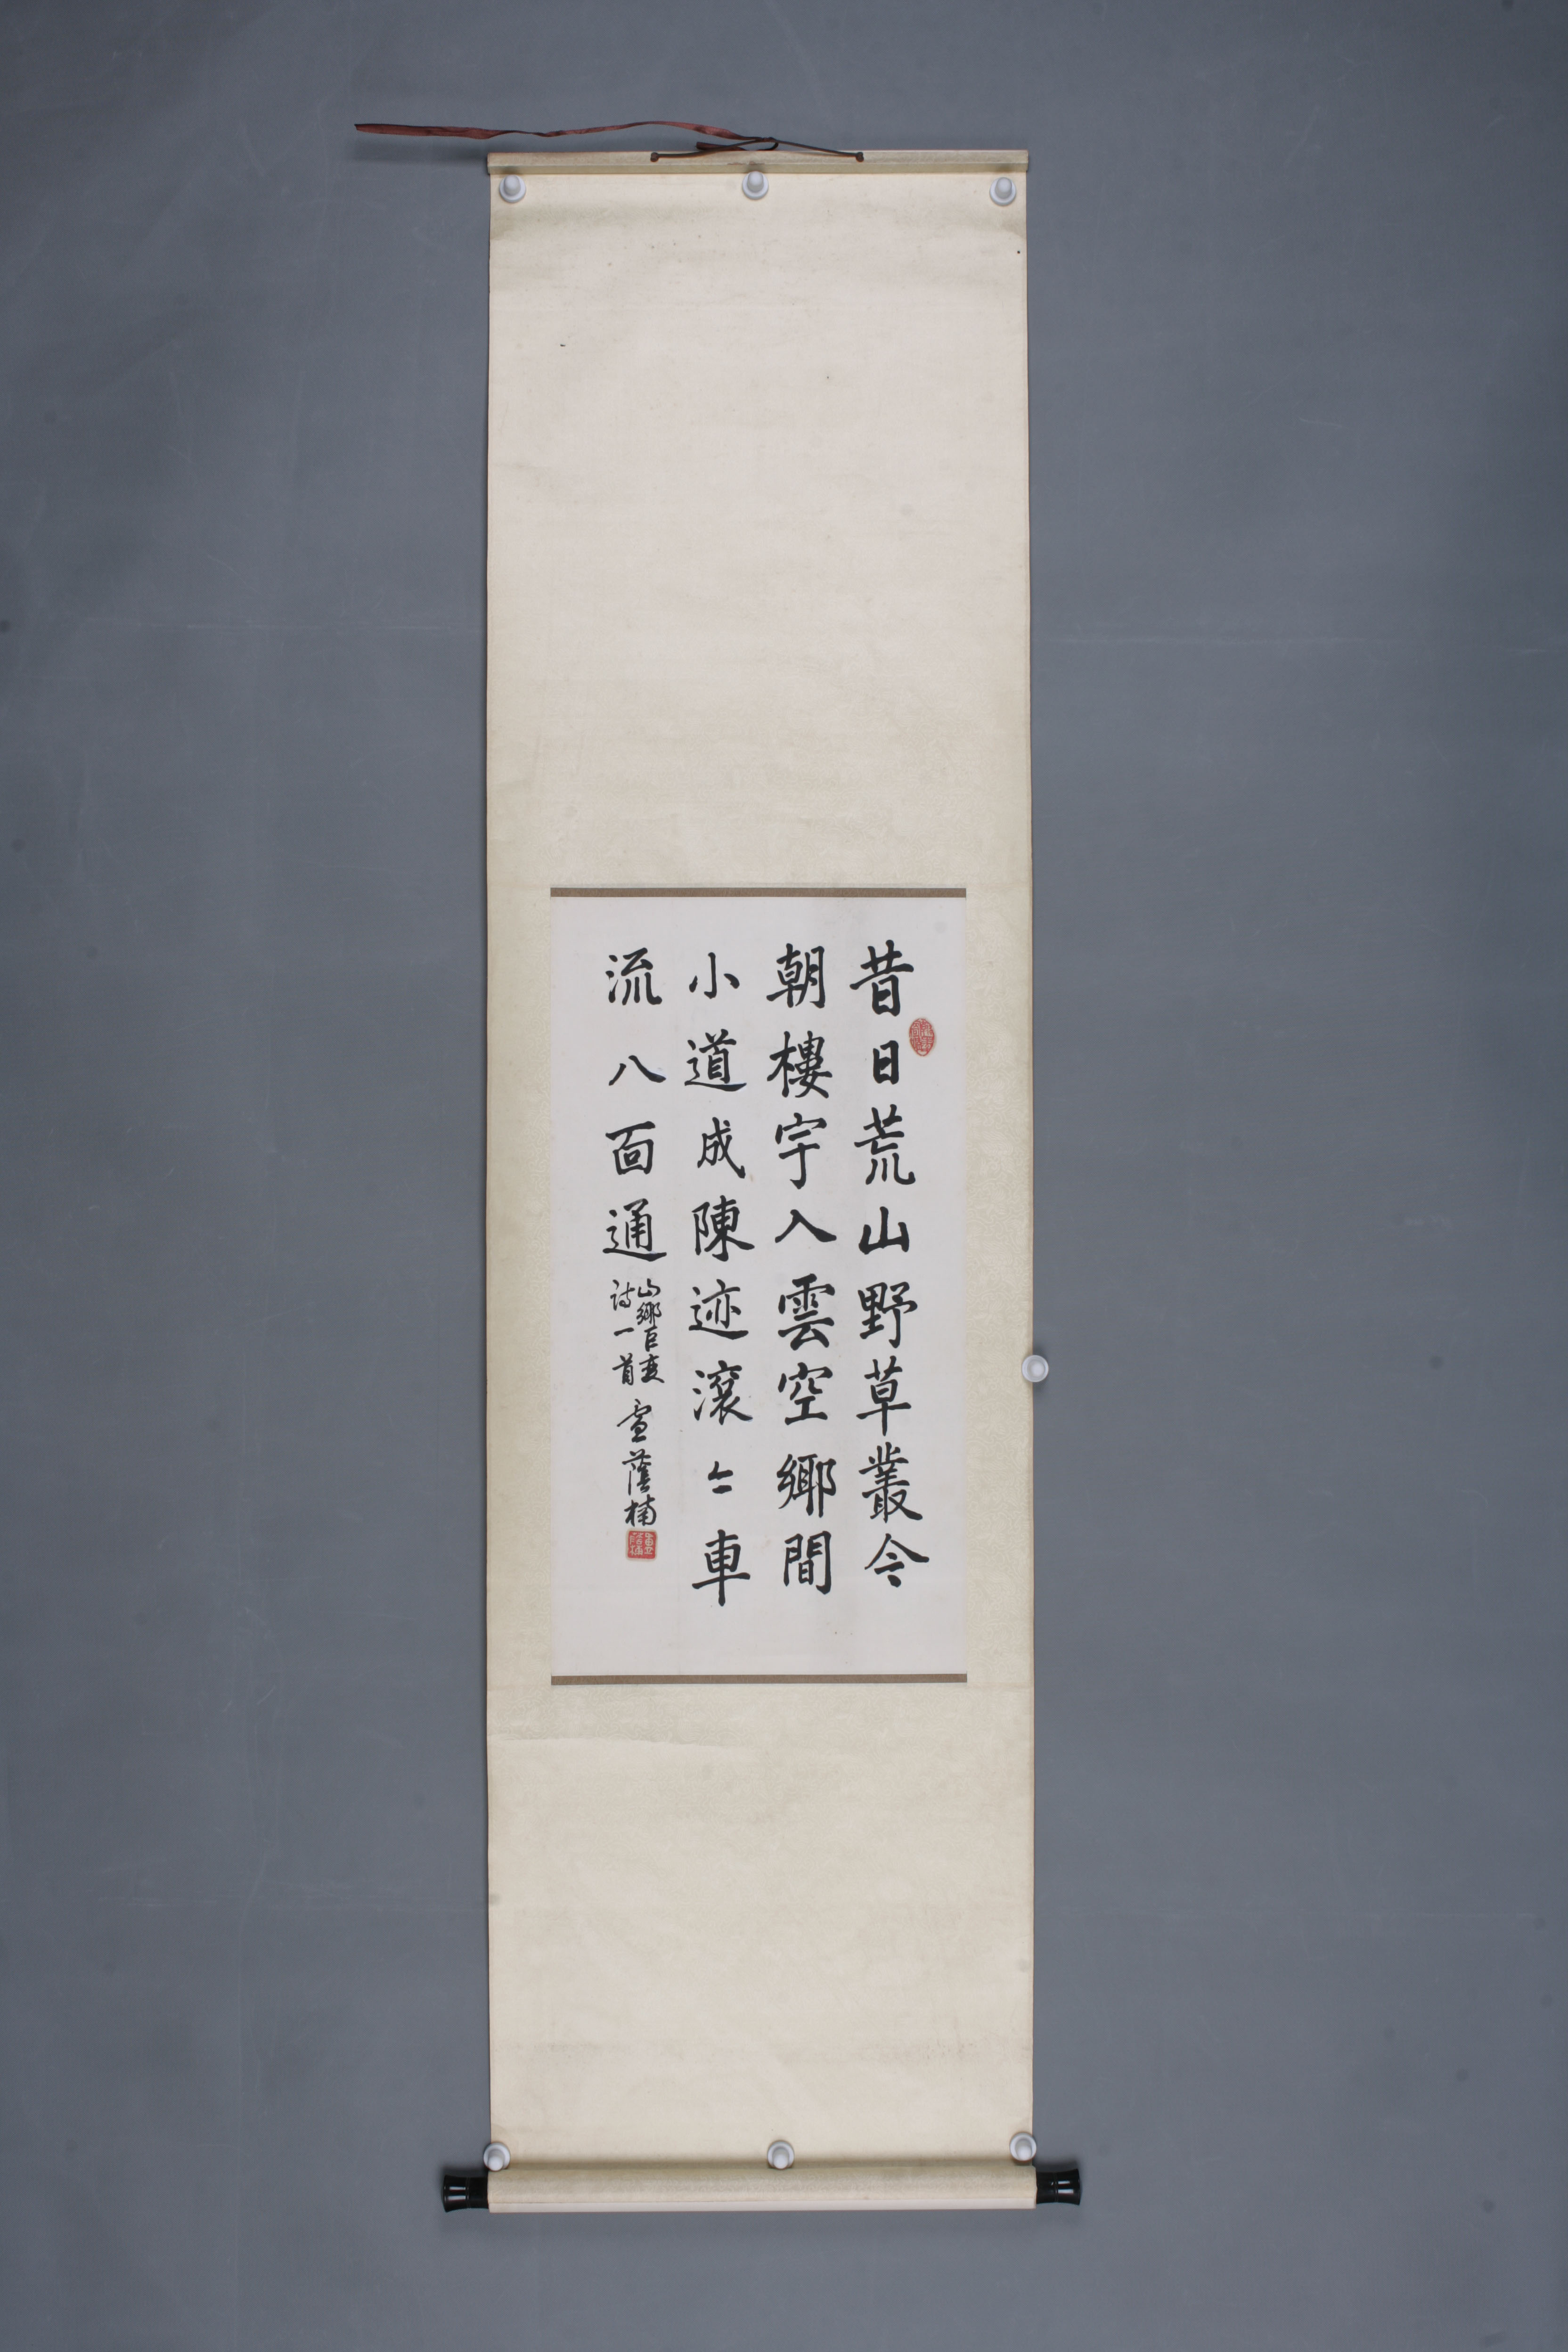 昔日荒山野草叢今
朝樓宇入雲空鄉間
小道成陳迹滾々車
流八面通
山鄉巨变
诗一首
蔭楠